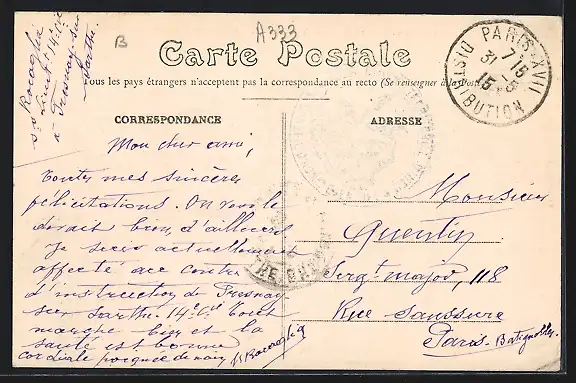 A333
B
Carte Postale
Tous les pays étrangers n'acceptent pas la correspondance au recto (Se renseigner à la Poste)
CORRESPONDANCE
ADRESSE
PARIS XVII
DISTRIBUTION
715
31
15
S/s Rocaglia
Lieut 14e
à Fresnay-sur
Sarthe.
Mon cher ami,
Toutes mes sincères
félicitations. On vous le
devait bien, d'ailleurs
Je suis actuellement
affecté au Centre
d'instruction de Fresnay
sur Sarthe. 14e Cie Tout
marche bien et la
santé est bonne
Cordiale poignée de main
Monsieur
Quentin
Sergt major, 118
Rue Saussure
Paris. Batignolles